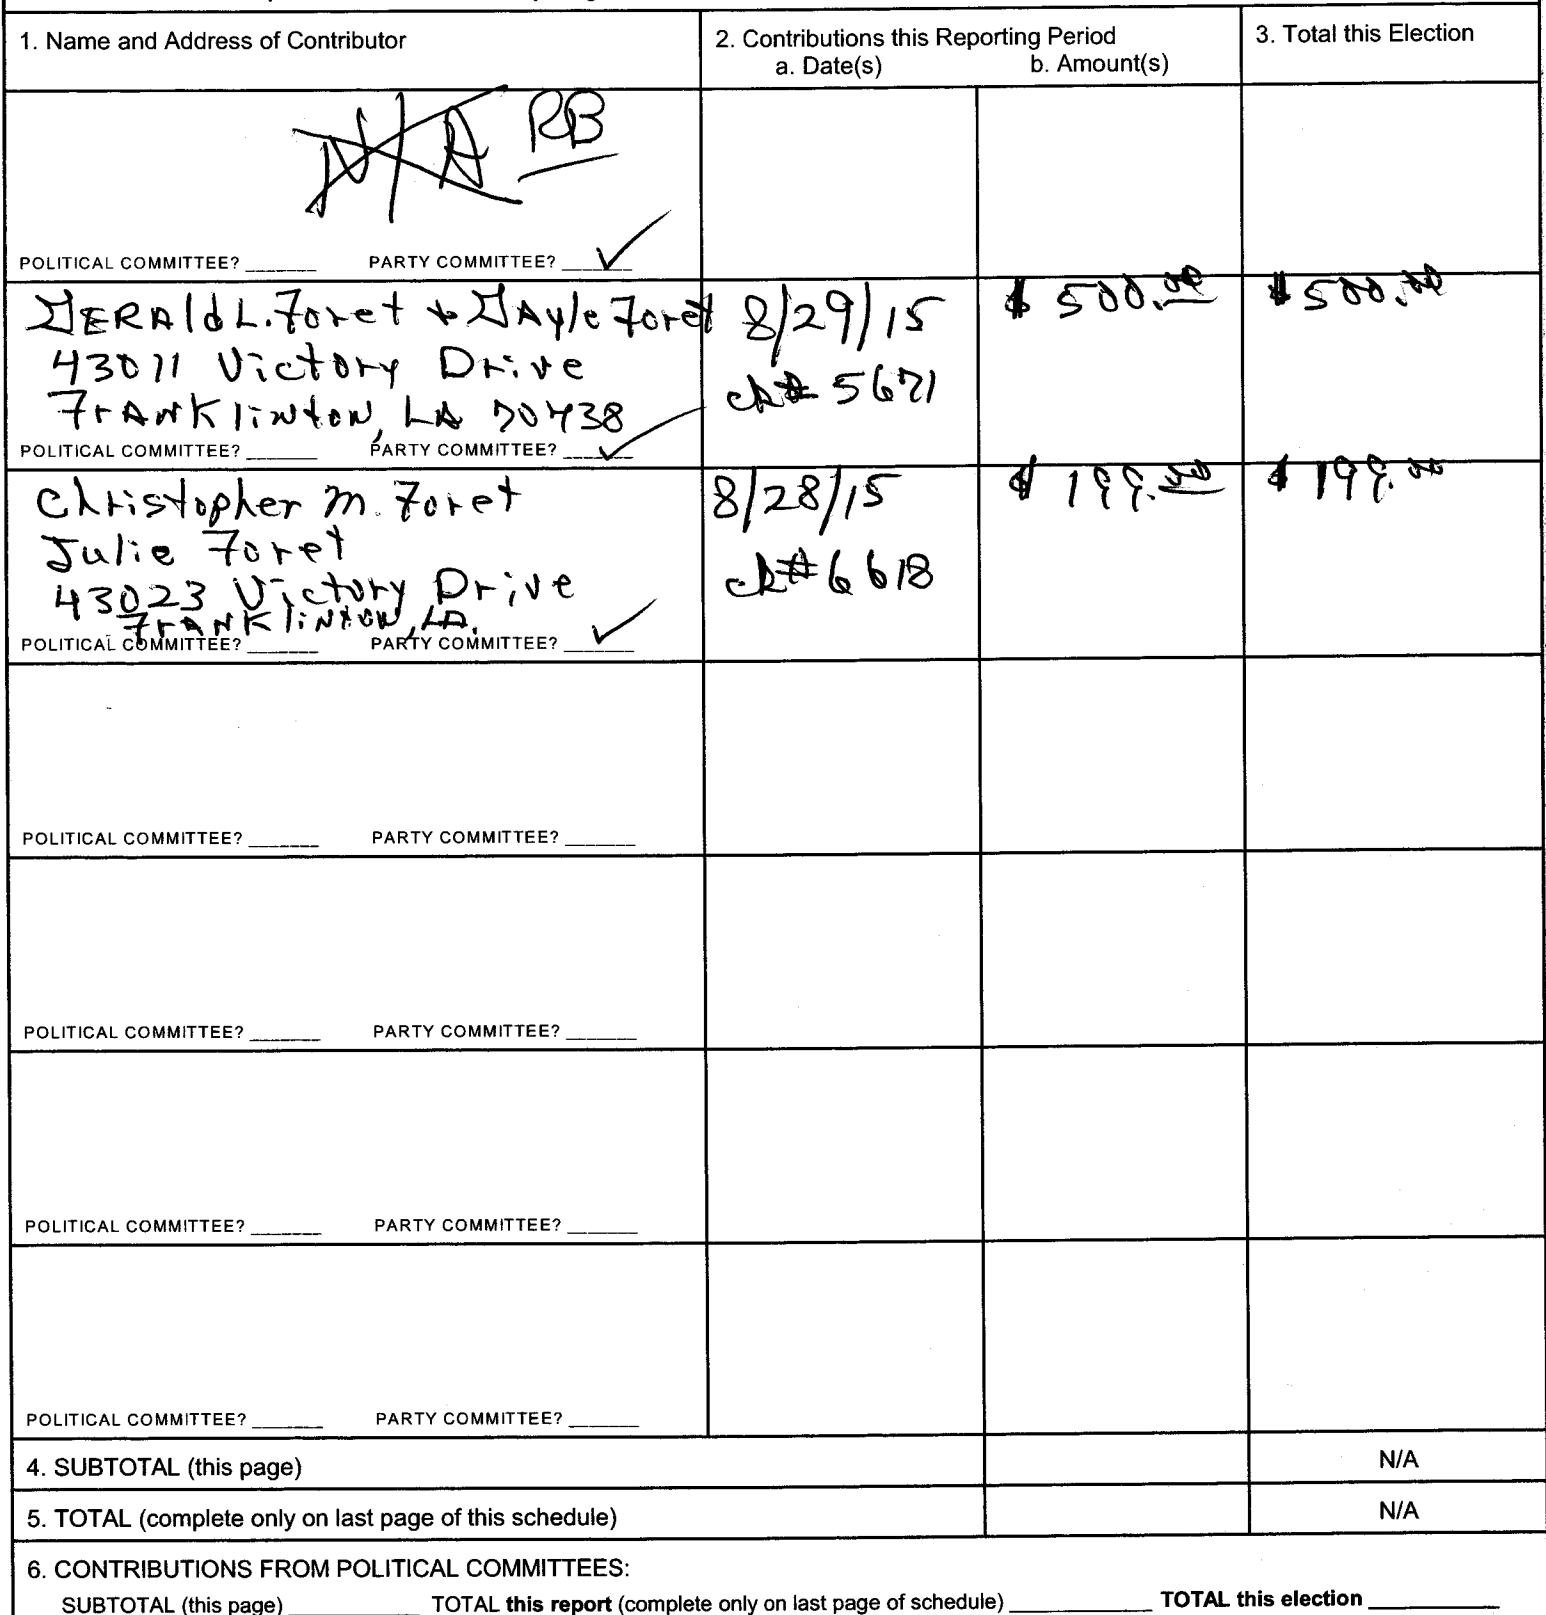 1. Name and Address of Contributor 2. Contributions this Reporting Period 3. Total this Election
a. Date(s) b. Amount(s)
N/A RB
POLITICAL COMMITTEE? PARTY COMMITTEE? ✓
GERAld L. Foret + GAyle Foret 8/29/15 $ 500.00 $ 500.00
43011 Victory Drive ck# 5671
FrANKlinton, LA 70438
POLITICAL COMMITTEE? PARTY COMMITTEE? ✓
Christopher M. Foret 8/28/15 $ 199.00 $ 199.00
Julie Foret ck# 6618
43023 Victory Drive
FrANKlinton, LA.
POLITICAL COMMITTEE? PARTY COMMITTEE? ✓
POLITICAL COMMITTEE? PARTY COMMITTEE?
POLITICAL COMMITTEE? PARTY COMMITTEE?
POLITICAL COMMITTEE? PARTY COMMITTEE?
POLITICAL COMMITTEE? PARTY COMMITTEE?
4. SUBTOTAL (this page) N/A
5. TOTAL (complete only on last page of this schedule) N/A
6. CONTRIBUTIONS FROM POLITICAL COMMITTEES:
SUBTOTAL (this page) TOTAL this report (complete only on last page of schedule) TOTAL this election